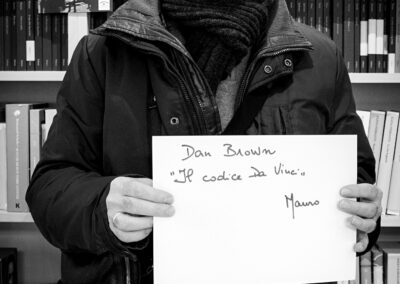 Dan Brown
"Il codice Da Vinci"
Mauro